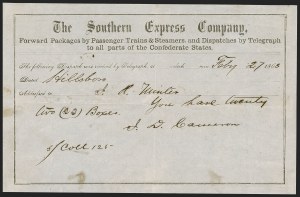 The Southern Express Company,
Forward Packages by Passenger Trains & Steamers, and Dispatches by Telegraph
to all parts of the Confederate States.
The following Dispatch was received by Telegraph at o'clock Feby 27 1863
Dated Hillsboro
Addressed to R. Hunter
You have twenty
two (22) Boxes
J. D. Cameron
Coll 125